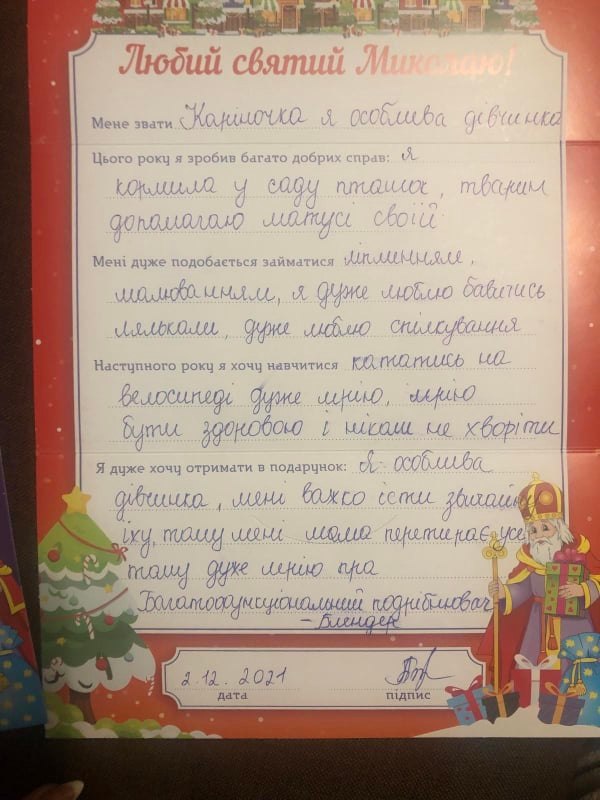 Любий святий Миколаю!
Мене звати Каріночка я особлива дівчинка
Цього року я зробив багато добрих справ: я
кормила у саду пташок, тварин
допомагаю матусі своїй
Мені дуже подобається займатися ліпленням,
малюванням, я дуже люблю бавитись
ляльками, дуже люблю спілкування
Наступного року я хочу навчитися кататись на
велосипеді дуже мрію, мрію
бути здоровою і ніколи не хворіти
Я дуже хочу отримати в подарунок: Я особлива
дівчинка, мені важко їсти звичайну
їху, тому мені мама перетирає усе
тому дуже мрію пра
Багатофункціональний подрібнювач
- Блендер
2.12.2021
дата підпис